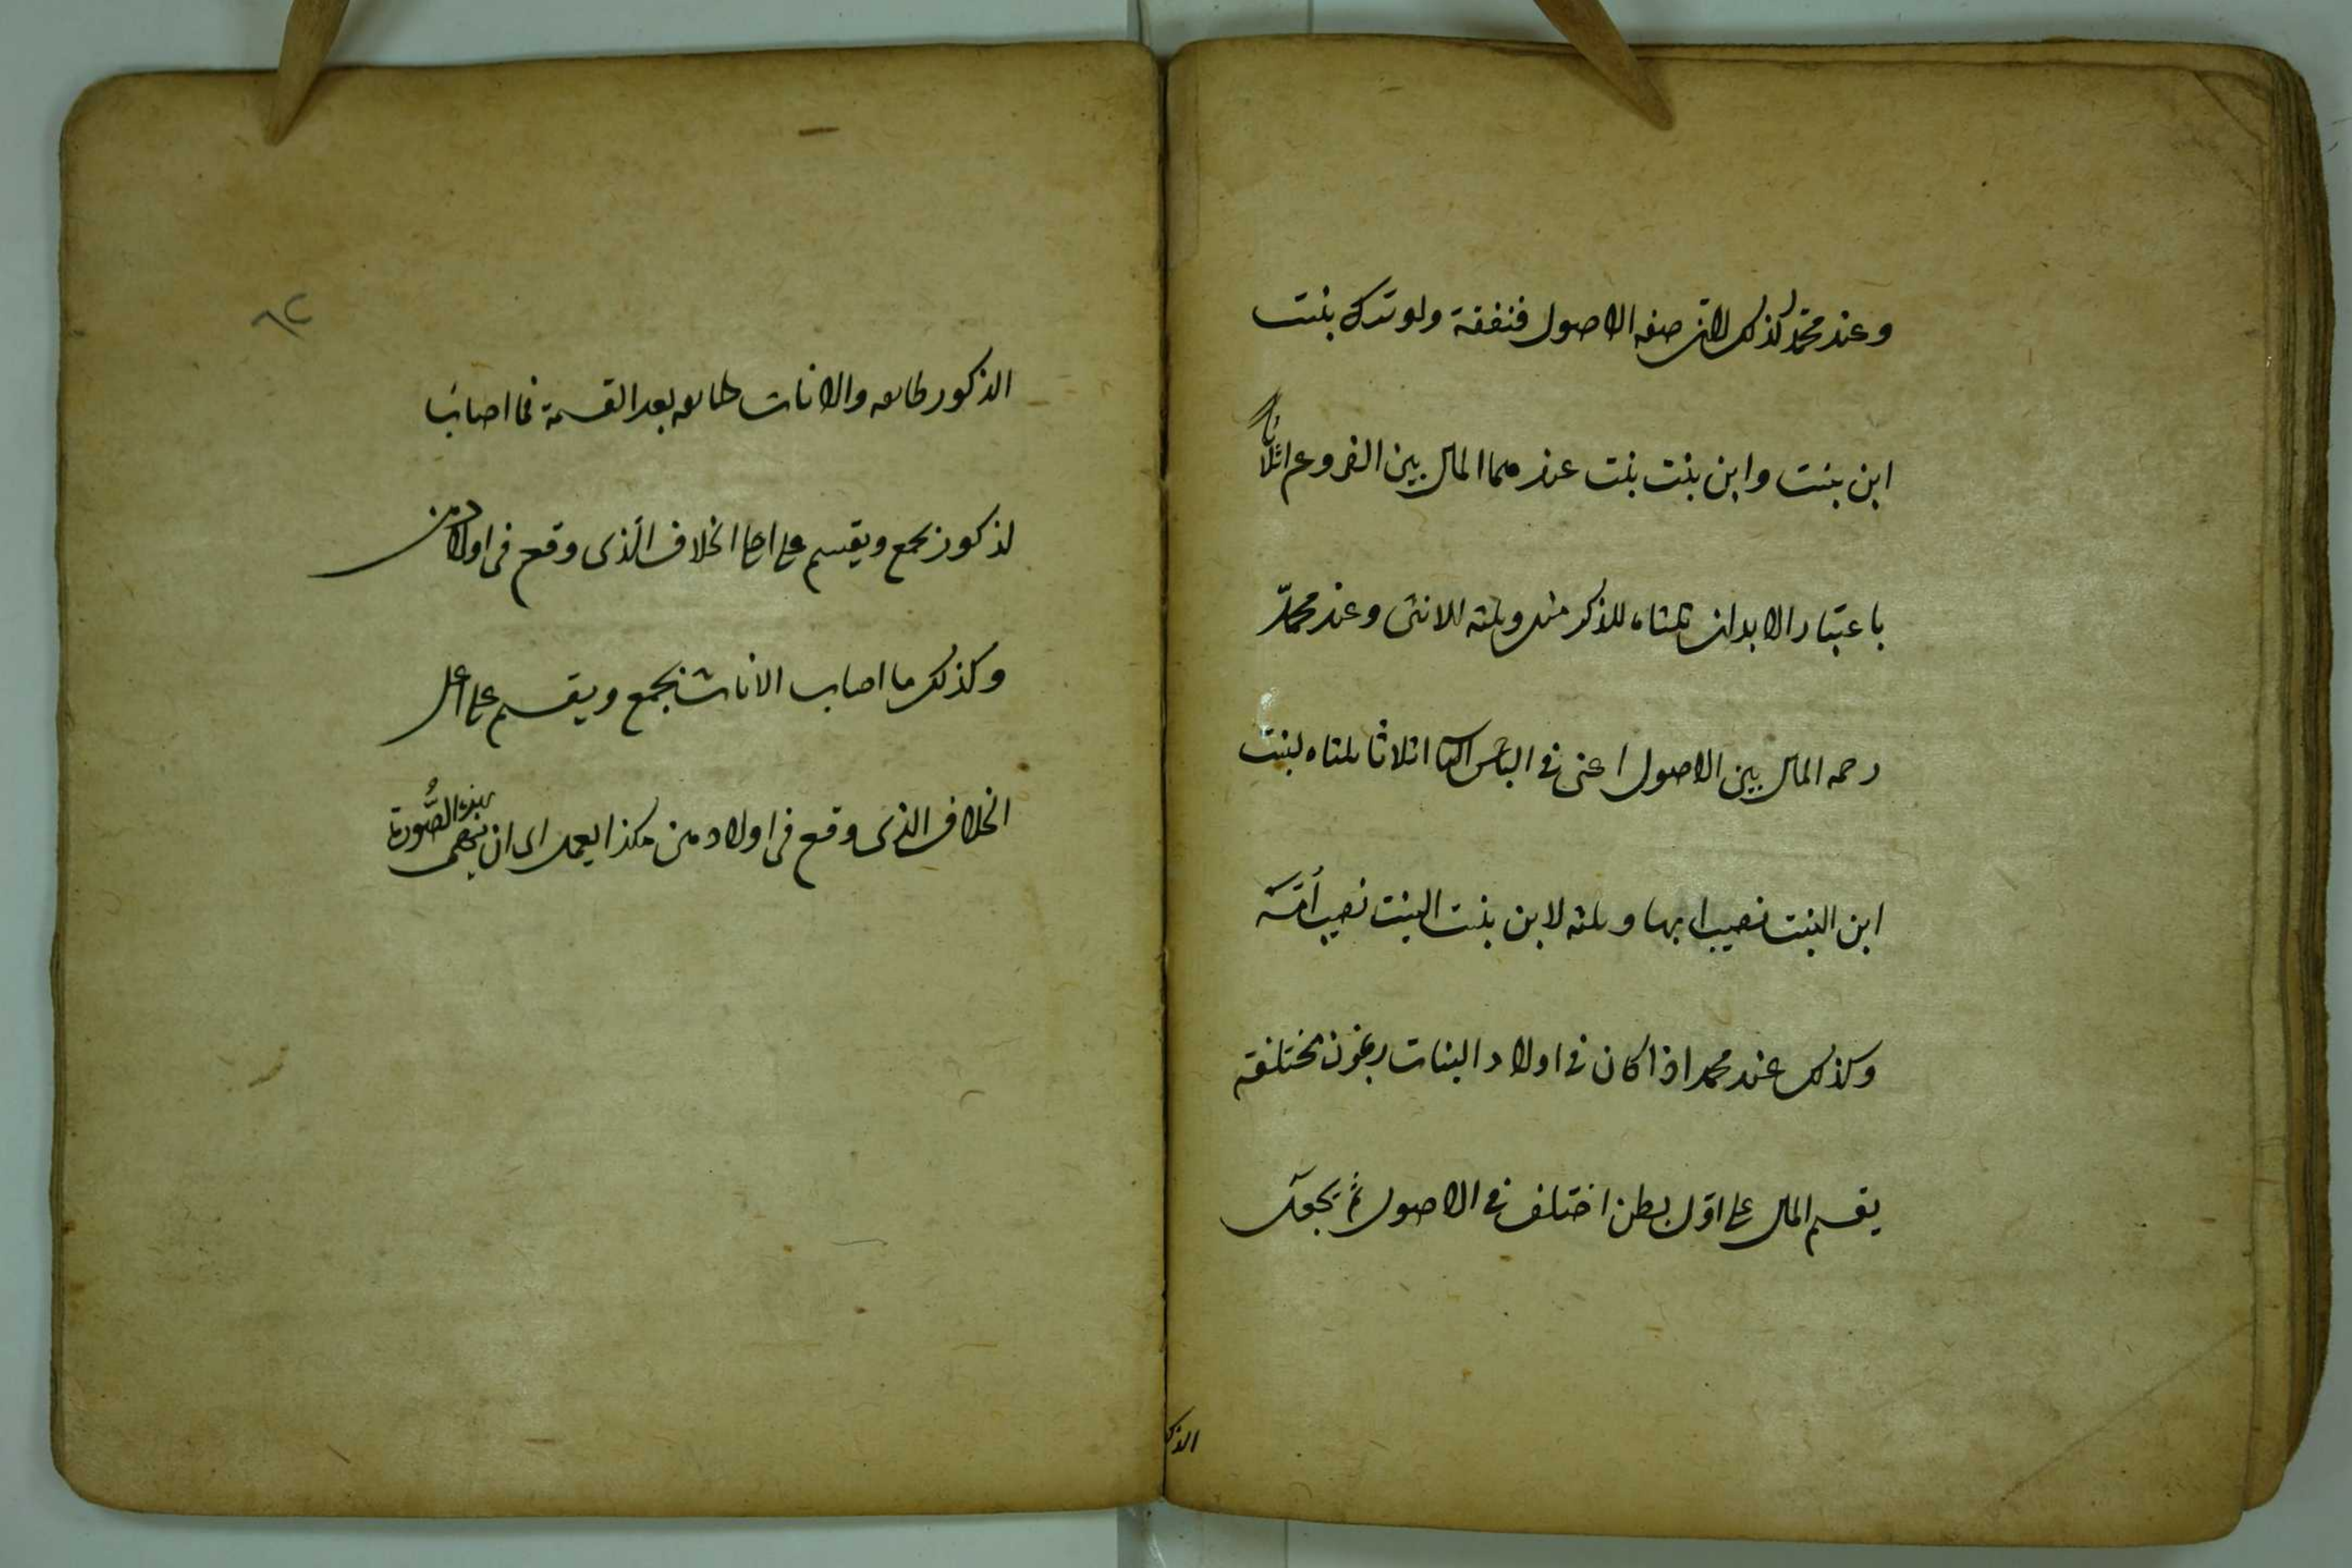 وعند محمد كذلك لان صفة الاصول متفقة ولو ترك بنت
ابن بنت وابن بنت بنت عندهما المال بين الفروع اثلاثا
باعتبار الابدان ثلثاه للذكر وثلثه للانثى وعند محمد
رحمه المال بين الاصول اعنى فى البطن الثانى اثلاثا ثلثاه لبنت
ابن البنت نصيب ابيها وثلثه لابن بنت البنت نصيب امه
وكذلك عند محمد اذا كان فى اولاد البنات بطون مختلفة
يقسم المال على اول بطن اختلف فى الاصول ثم يجعل
الذكو
٦٢
الذكور طائفه والاناث طائفه بعد القسمة فما اصاب
لذكور يجمع ويقسم على اعلى الخلاف الذى وقع فى اولادهن
وكذلك ما اصاب الاناث يجمع ويقسم على اعلى
الخلاف الذى وقع فى اولادهن هكذا يعمل الى ان ينتهى بهذه الصورة